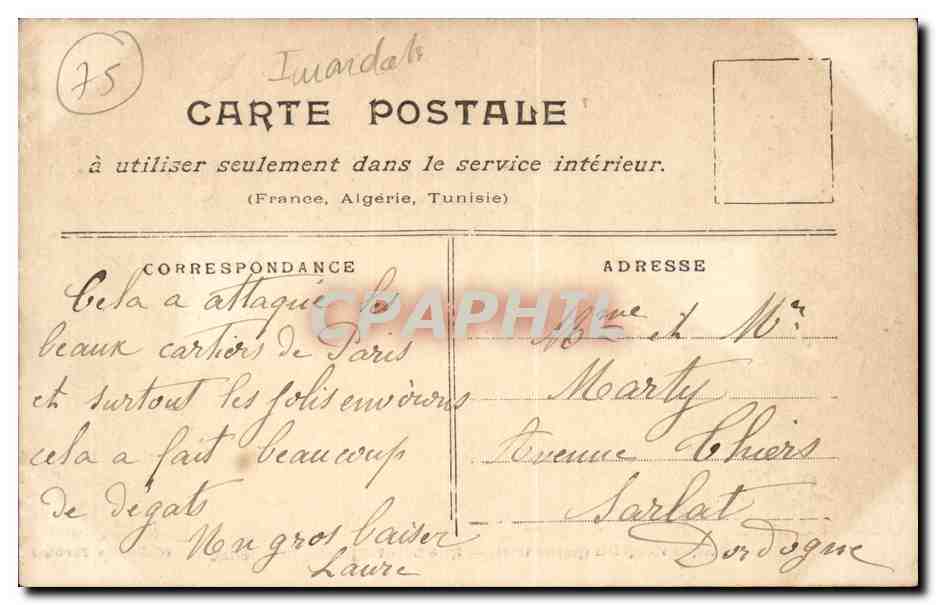 75
CARTE POSTALE
à utiliser seulement dans le service intérieur.
(France, Algérie, Tunisie)
CORRESPONDANCE
Cela a attaqué les
beaux cartiers de Paris
et surtout les jolis environs
cela a fait beaucoup
de dégats
Un gros baiser
Laure
ADRESSE
Mme et Mr
Marty
Avenue Thiers
Sarlat
Dordogne
CPAPHIL